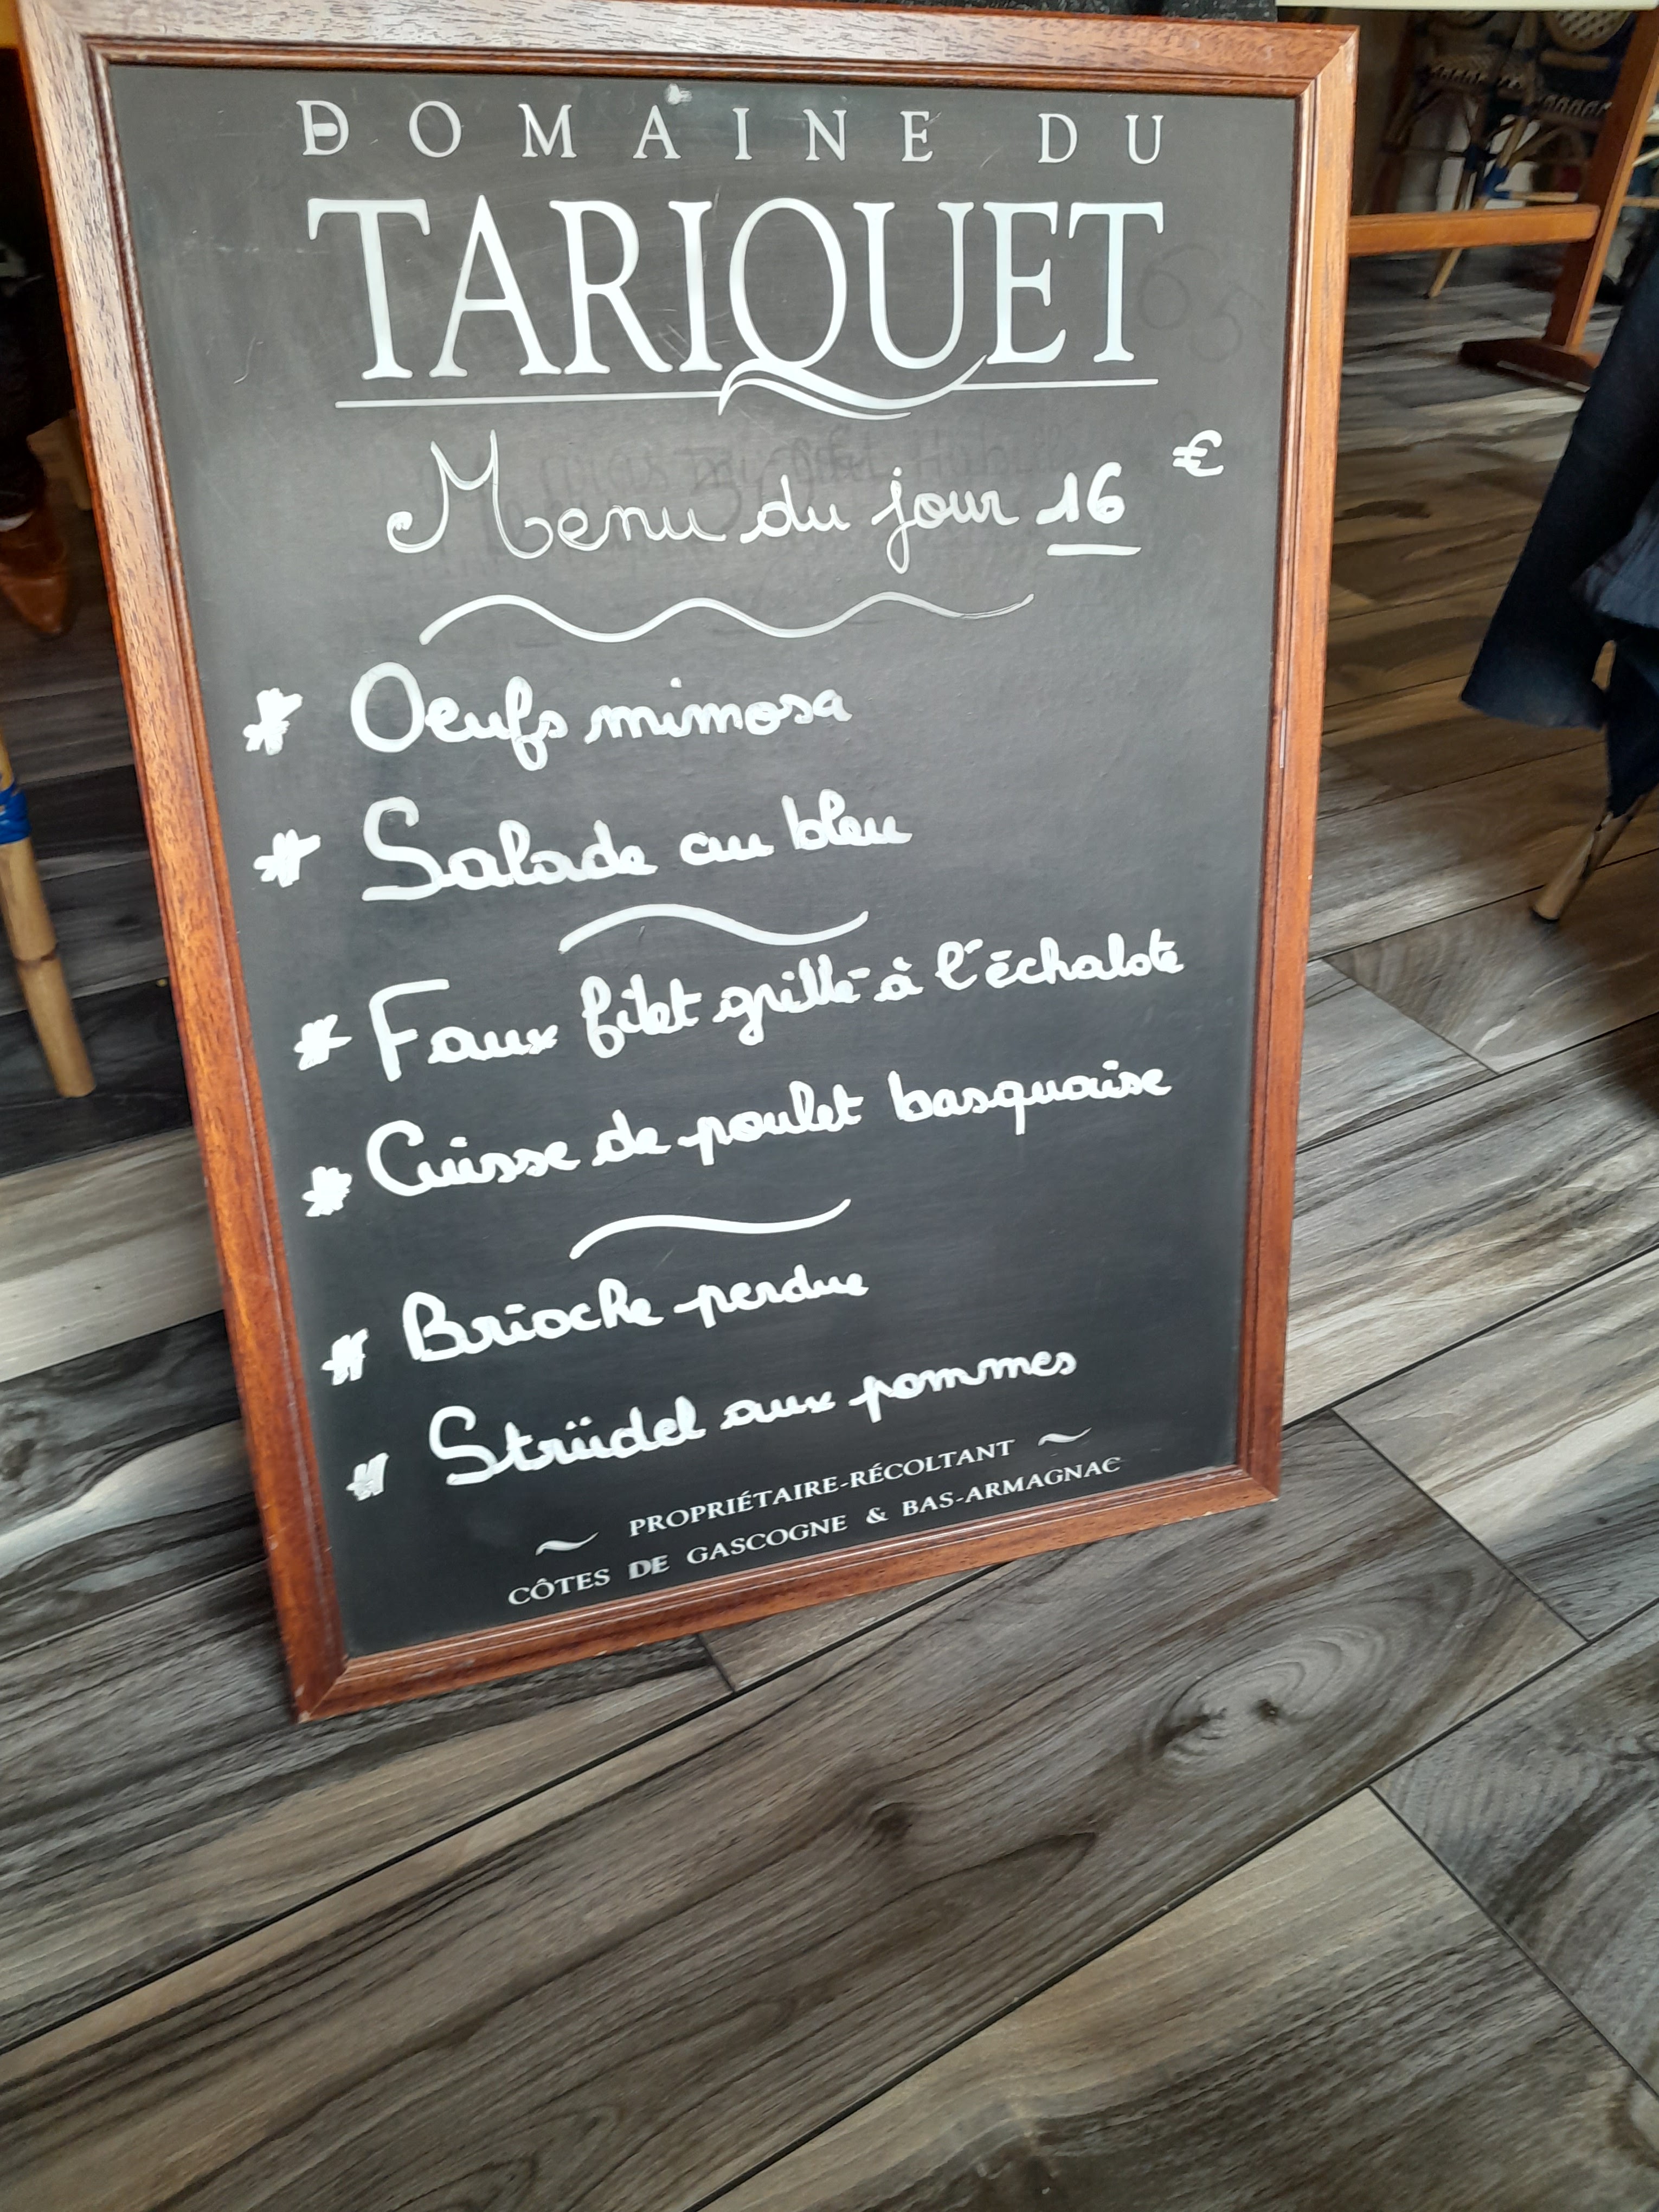 DOMAINE DU
TARIQUET
Menu du jour 16 €
* Oeufs mimosa
* Salade au bleu
* Faux filet grillé à l'échalote
* Cuisse de poulet basquaise
* Brioche perdue
* Strüdel aux pommes
PROPRIÉTAIRE-RÉCOLTANT
CÔTES DE GASCOGNE & BAS-ARMAGNAC